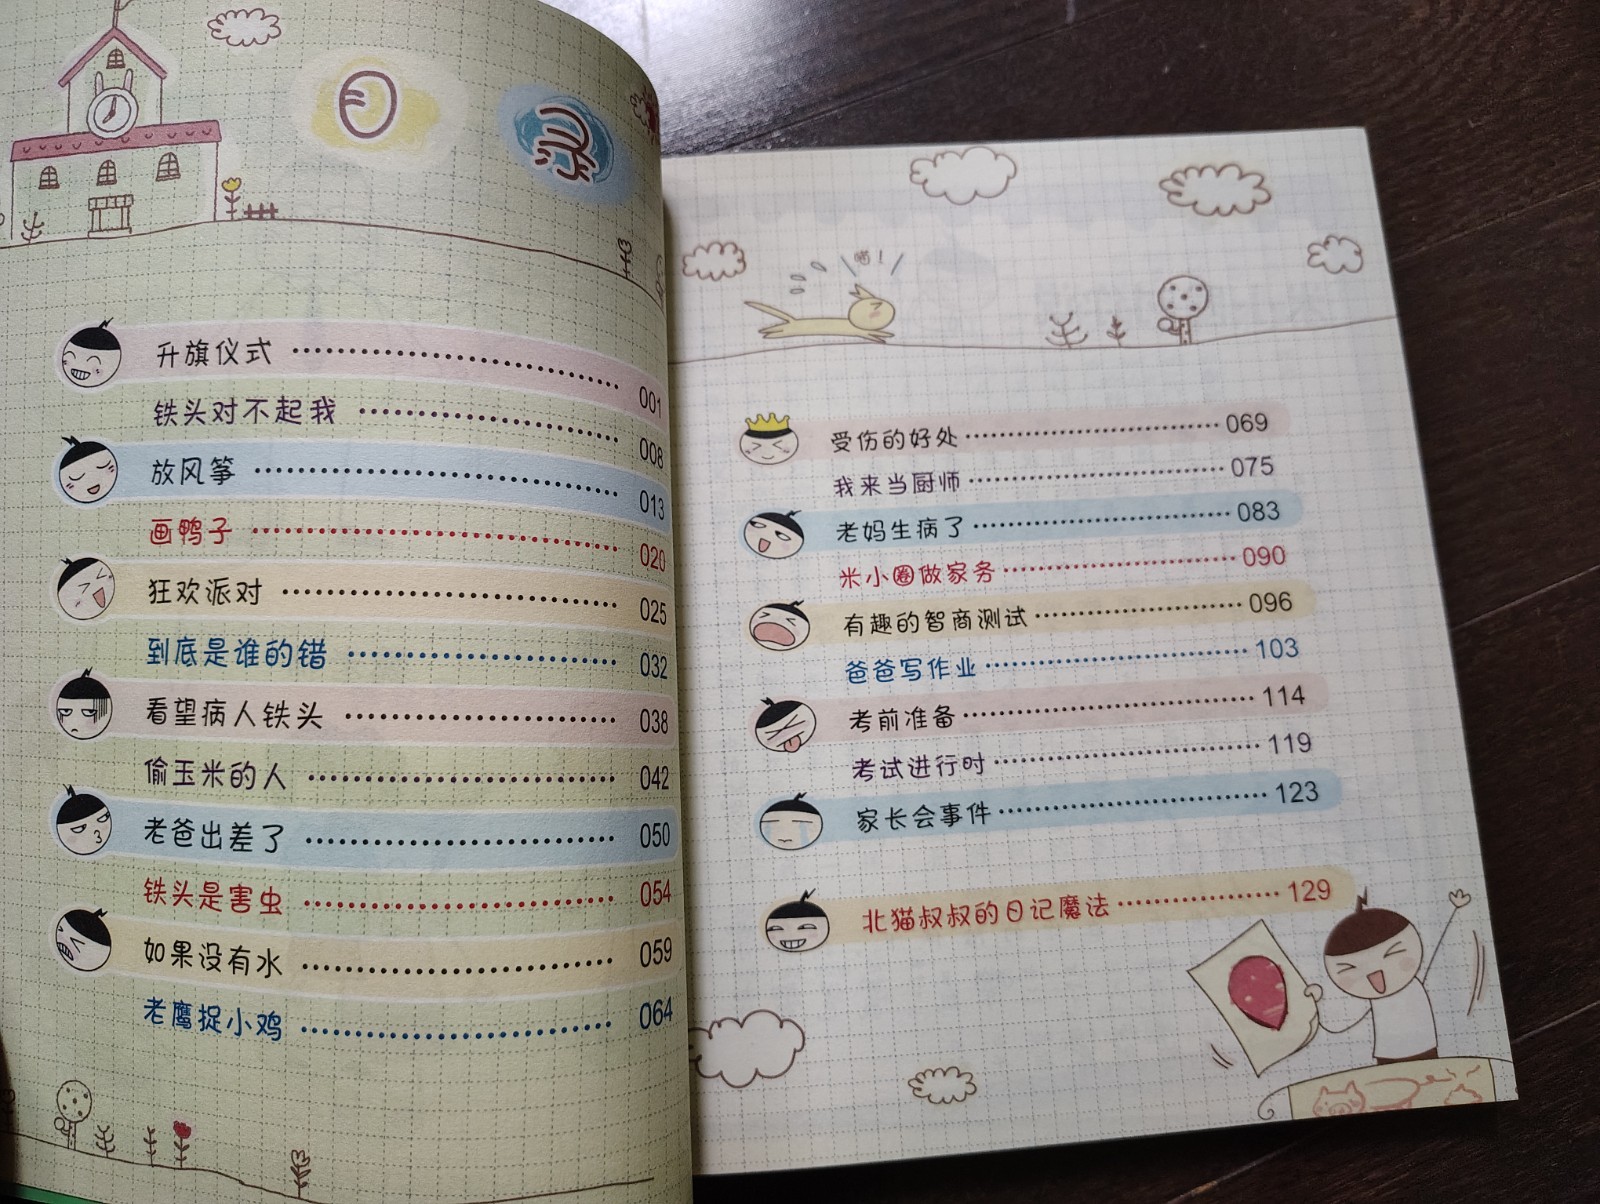 目录
升旗仪式 ………………………… 001
铁头对不起我 ………………………… 008
放风筝 ………………………… 013
画鸭子 ………………………… 020
狂欢派对 ………………………… 025
到底是谁的错 ………………………… 032
看望病人铁头 ………………………… 038
偷玉米的人 ………………………… 042
老爸出差了 ………………………… 050
铁头是害虫 ………………………… 054
如果没有水 ………………………… 059
老鹰捉小鸡 ………………………… 064
喵！
受伤的好处 ………………………… 069
我来当厨师 ………………………… 075
老妈生病了 ………………………… 083
米小圈做家务 ………………………… 090
有趣的智商测试 ………………………… 096
爸爸写作业 ………………………… 103
考前准备 ………………………… 114
考试进行时 ………………………… 119
家长会事件 ………………………… 123
北猫叔叔的日记魔法 ………………………… 129